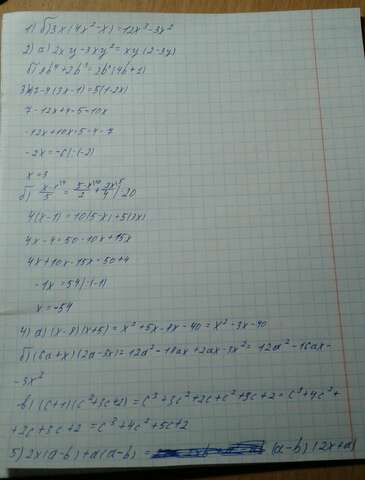 1) б) 3x(4x²-x)=12x³-3x²
2) а) 2xy-3xy²=xy(2-3y)
б) 8b⁴+2b³=2b³(4b+1)
3) 7-4(3x-1)=5(1-2x)
7-12x+4=5-10x
-12x+10x=5-4-7
-2x=-6|·(-2)
x=3
б) x-1/5 = 5-x/2 + 3x/4 | 20
4(x-1)=10(5-x)+5(3x)
4x-4=50-10x+15x
4x+10x-15x=50+4
-1x=54|·(-1)
x=-54
4) а) (x-8)(x+5)=x²+5x-8x-40=x²-3x-40
б) (6a+x)(2a-3x)=12a²-18ax+2ax-3x²=12a²-16ax-
-3x²
в) (c+1)(c²+3c+2)=c³+3c²+2c+c²+3c+2=c³+4c²+
+2c+3c+2=c³+4c²+5c+2
5) 2x(a-b)+a(a-b)= (a-b)(2x+a)